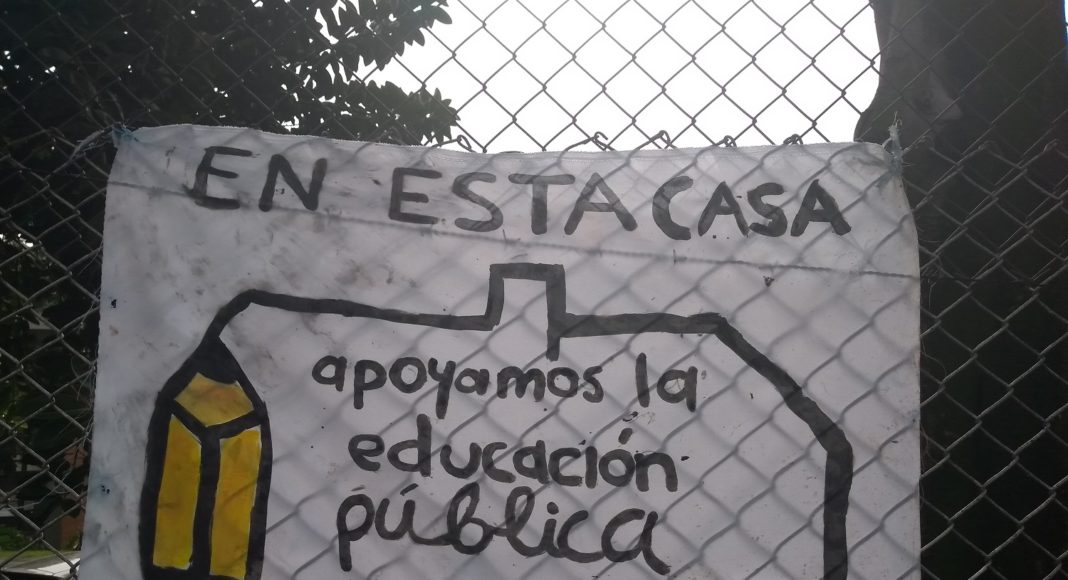 EN ESTA CASA
apoyamos la
educación
pública